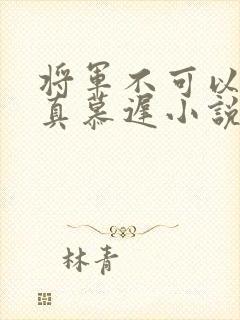 将軍不可以
真慕遲小說
林青